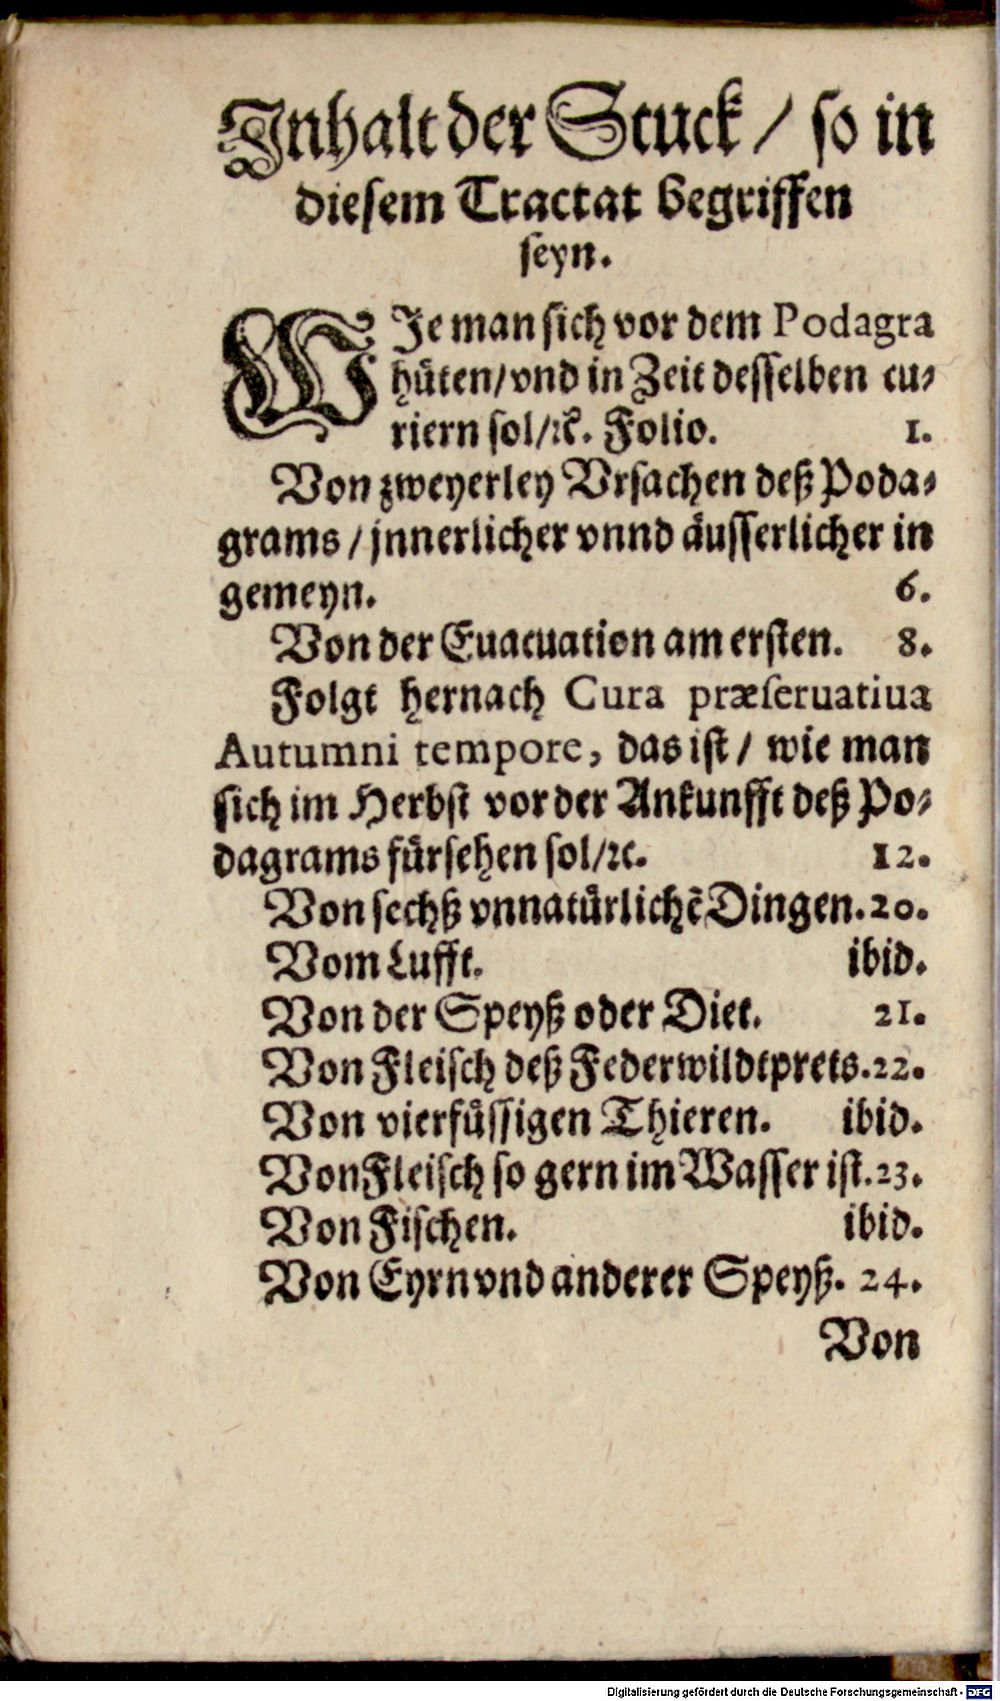 Inhalt der Stuck / so in
diesem Tractat begriffen
seyn.
WJe man sich vor dem Podagra
hüten/vnd in Zeit desselben cu-
riern sol/ꝛc. Folio. 1.
Von zweyerley Vrsachen deß Poda-
grams / jnnerlicher vnnd äusserlicher in
gemeyn. 6.
Von der Euacuation am ersten. 8.
Folgt hernach Cura præseruatiua
Autumni tempore, das ist / wie man
sich im Herbst vor der Ankunfft deß Po-
dagrams fürsehen sol/ꝛc. 12.
Von sechß vnnatürlichẽ Dingen. 20.
Vom Lufft. ibid.
Von der Speyß oder Diet. 21.
Von Fleisch deß Federwildtprets. 22.
Von vierfüssigen Thieren. ibid.
Von Fleisch so gern im Wasser ist. 23.
Von Fischen. ibid.
Von Eyrn vnd anderer Speyß. 24.
Von
Digitalisierung gefördert durch die Deutsche Forschungsgemeinschaft - DFG